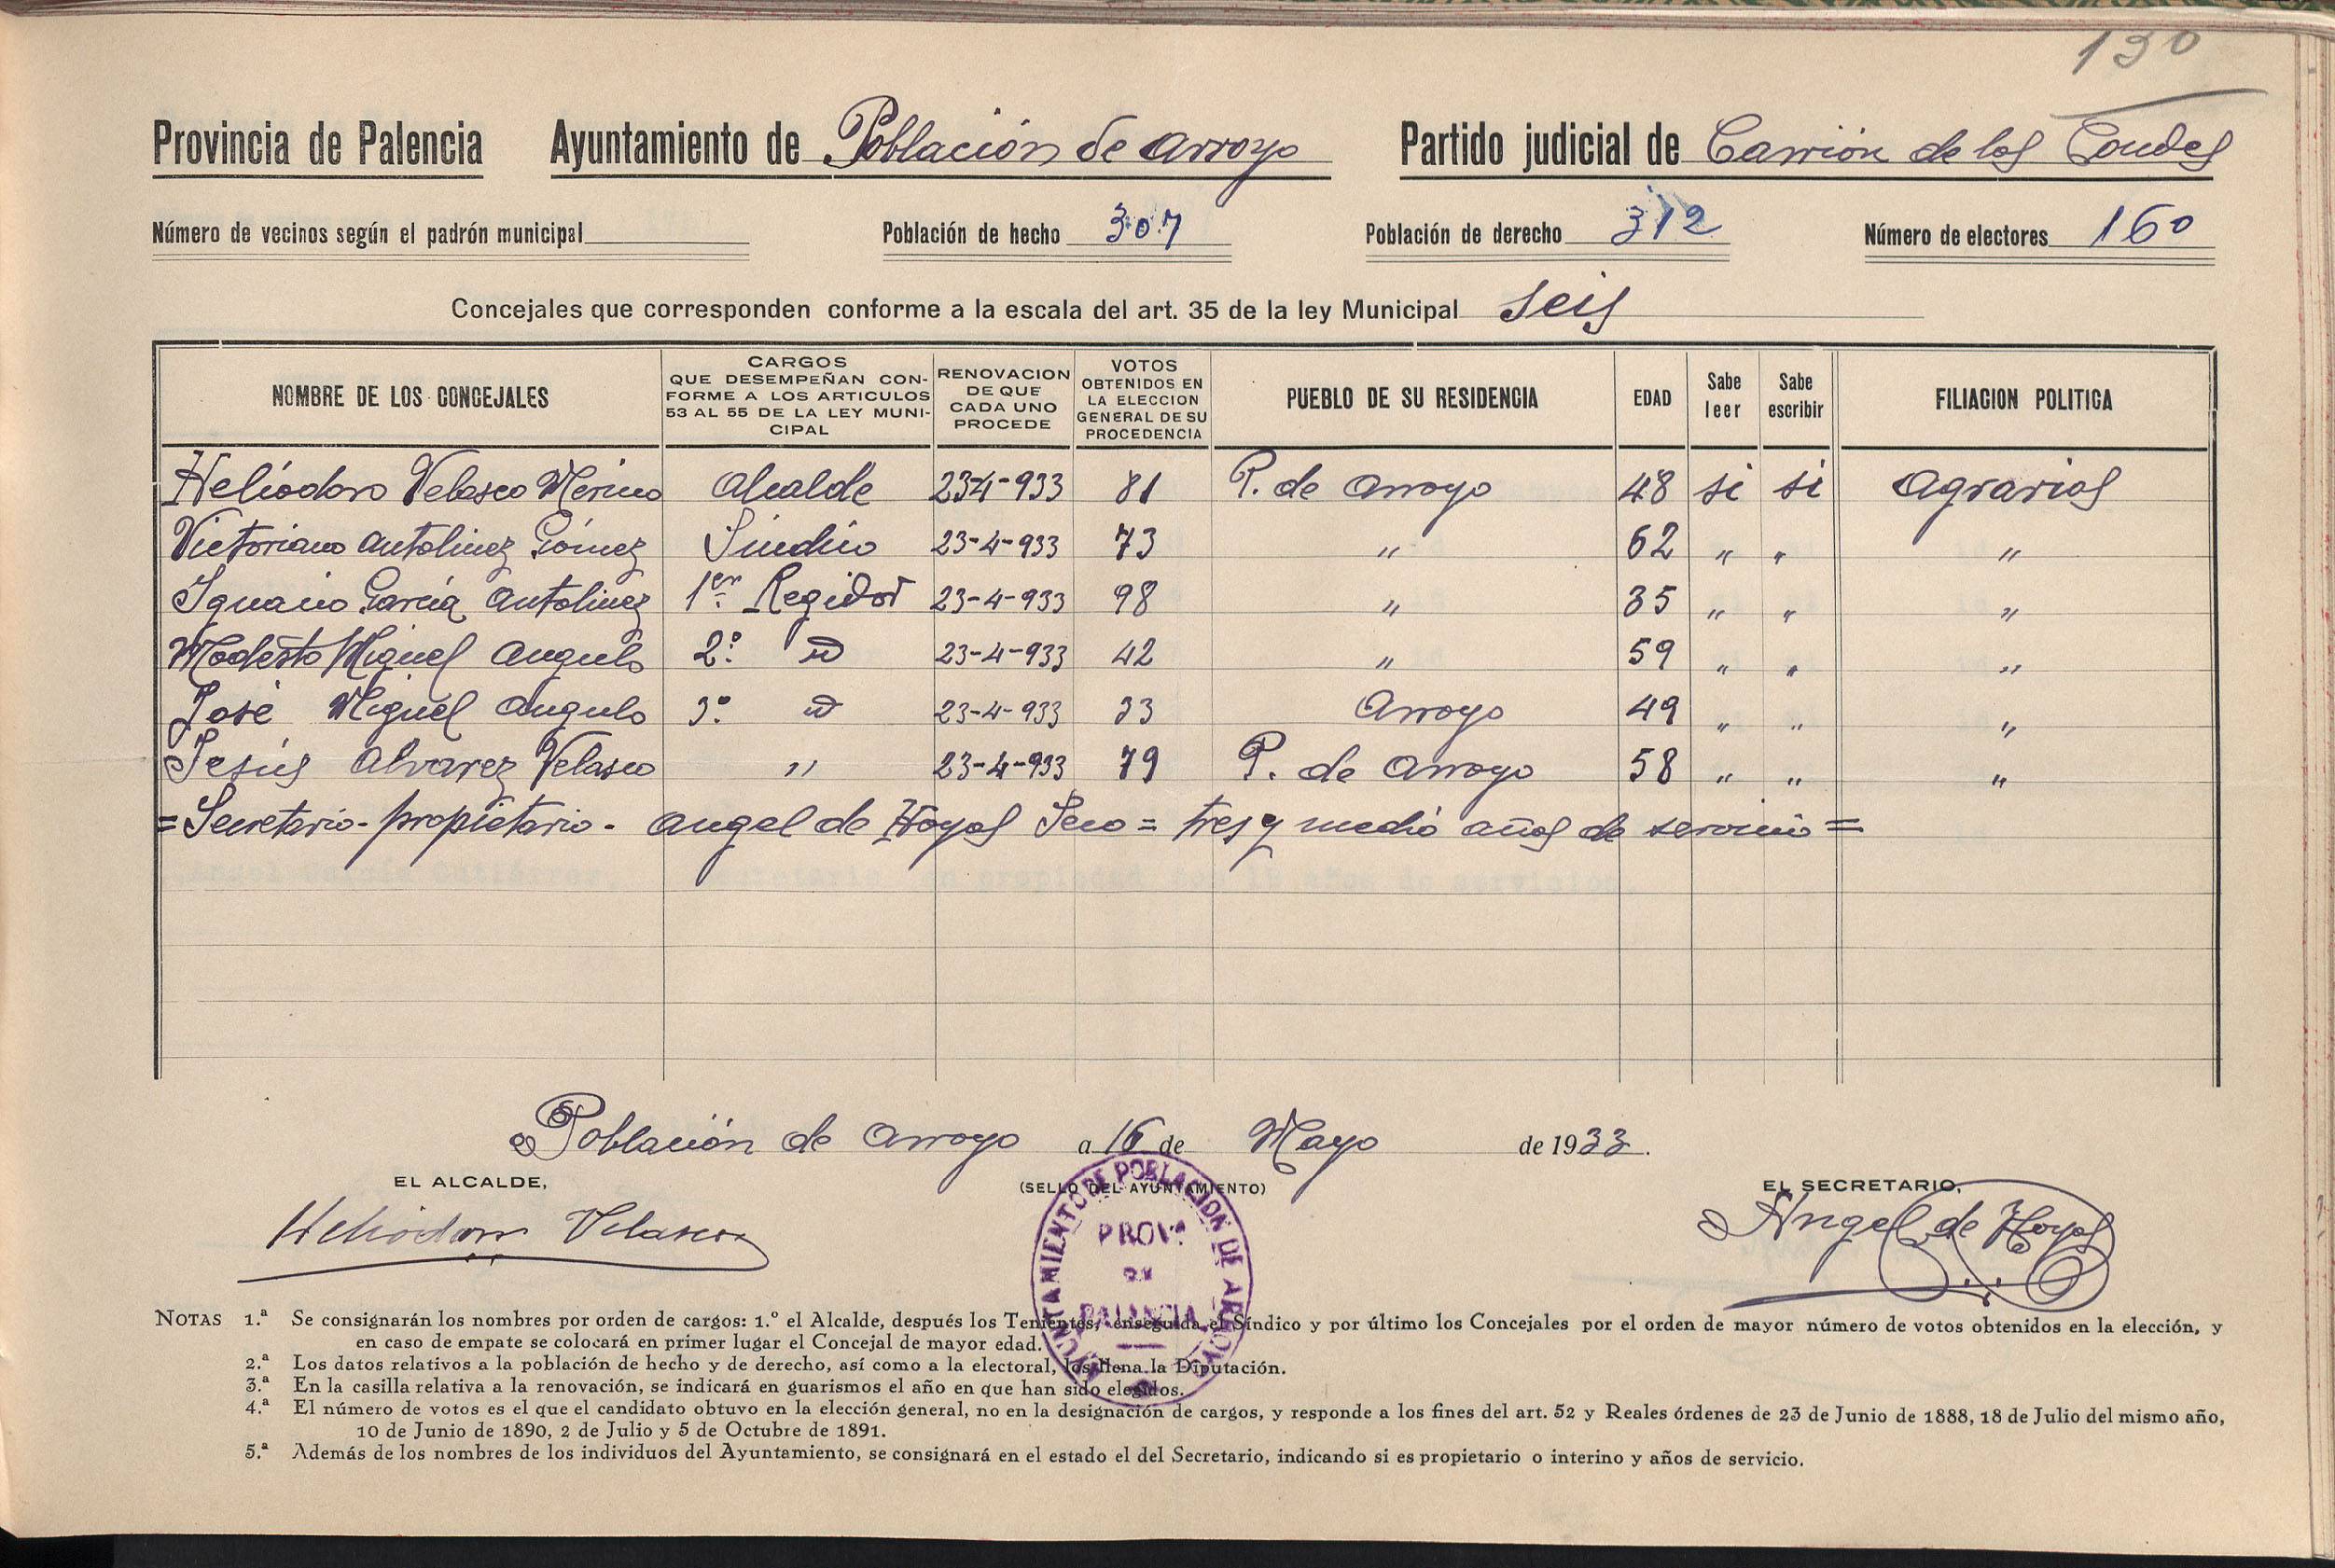 130
Provincia de Palencia Ayuntamiento de Población de Arroyo Partido judicial de Carrión de los Condes
Número de vecinos según el padrón municipal Población de hecho 307 Población de derecho 312 Número de electores 160
Concejales que corresponden conforme a la escala del art. 35 de la ley Municipal Seis
NOMBRE DE LOS CONCEJALES CARGOS QUE DESEMPEÑAN CONFORME A LOS ARTICULOS 53 AL 55 DE LA LEY MUNICIPAL RENOVACION DE QUE CADA UNO PROCEDE VOTOS OBTENIDOS EN LA ELECCION GENERAL DE SU PROCEDENCIA PUEBLO DE SU RESIDENCIA EDAD Sabe leer Sabe escribir FILIACION POLITICA
Heliodoro Velasco Merino Alcalde 23-4-933 81 P. de Arroyo 48 si si Agrarios
Victoriano Antolinez Gómez Síndico 23-4-933 73 " 62 " " "
Ignacio García Antolinez 1er Regidor 23-4-933 98 " 35 " " "
Modesto Miguel Angulo 2º id 23-4-933 42 " 59 " " "
José Miguel Angulo 3º id 23-4-933 33 Arroyo 49 " " "
Jesús Alvarez Velasco " 23-4-933 79 P. de Arroyo 58 " " "
= Secretario-propietario - Angel de Hoyos Seco = tres y medio años de servicio =
Población de Arroyo a 16 de Mayo de 1933.
EL ALCALDE, (SELLO DEL AYUNTAMIENTO) EL SECRETARIO,
Heliodoro Velasco Angel de Hoyos
AYUNTAMIENTO DE POBLACION DE ARROYO
PROVª
DE
PALENCIA
NOTAS 1.ª Se consignarán los nombres por orden de cargos: 1.º el Alcalde, después los Tenientes, enseguida el Síndico y por último los Concejales por el orden de mayor número de votos obtenidos en la elección, y
en caso de empate se colocará en primer lugar el Concejal de mayor edad.
2.ª Los datos relativos a la población de hecho y de derecho, así como a la electoral, los llena la Diputación.
3.ª En la casilla relativa a la renovación, se indicará en guarismos el año en que han sido elegidos.
4.ª El número de votos es el que el candidato obtuvo en la elección general, no en la designación de cargos, y responde a los fines del art. 52 y Reales órdenes de 23 de Junio de 1888, 18 de Julio del mismo año,
10 de Junio de 1890, 2 de Julio y 5 de Octubre de 1891.
5.ª Además de los nombres de los individuos del Ayuntamiento, se consignará en el estado el del Secretario, indicando si es propietario o interino y años de servicio.